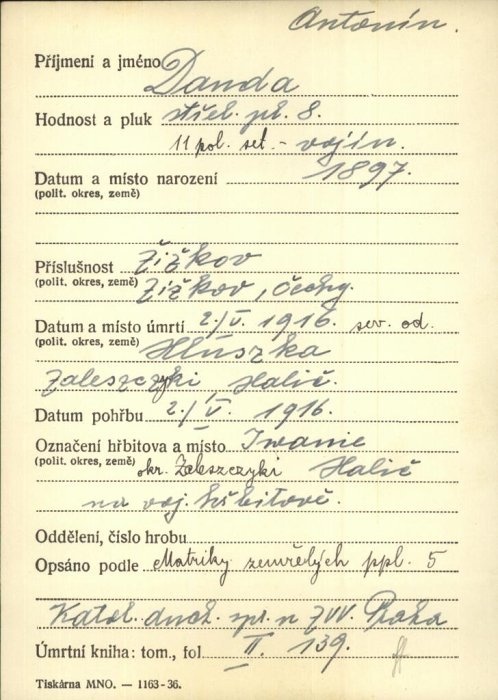 Antonín.
Příjmení a jméno Danda
Hodnost a pluk střel. pl. 8.
11 pol. set. - vojín.
Datum a místo narození 1897.
(polit. okres, země)
Příslušnost Žižkov
(polit. okres, země) Žižkov, Čechy.
Datum a místo úmrtí 2./V. 1916. sev. od.
(polit. okres, země) Hluszka
Zaleszczyki Halič.
Datum pohřbu 2./V. 1916.
Označení hřbitova a místo Iwanie
(polit. okres, země) okr. Zeleszczyki Halič
na voj. hřbitově.
Oddělení, číslo hrobu
Opsáno podle Matriky zemřelých ppl. 5
Katol. duch. spr. n ZVV. Praha
Úmrtní kniha: tom., fol II. 139.
Tiskárna MNO. — 1163-36.